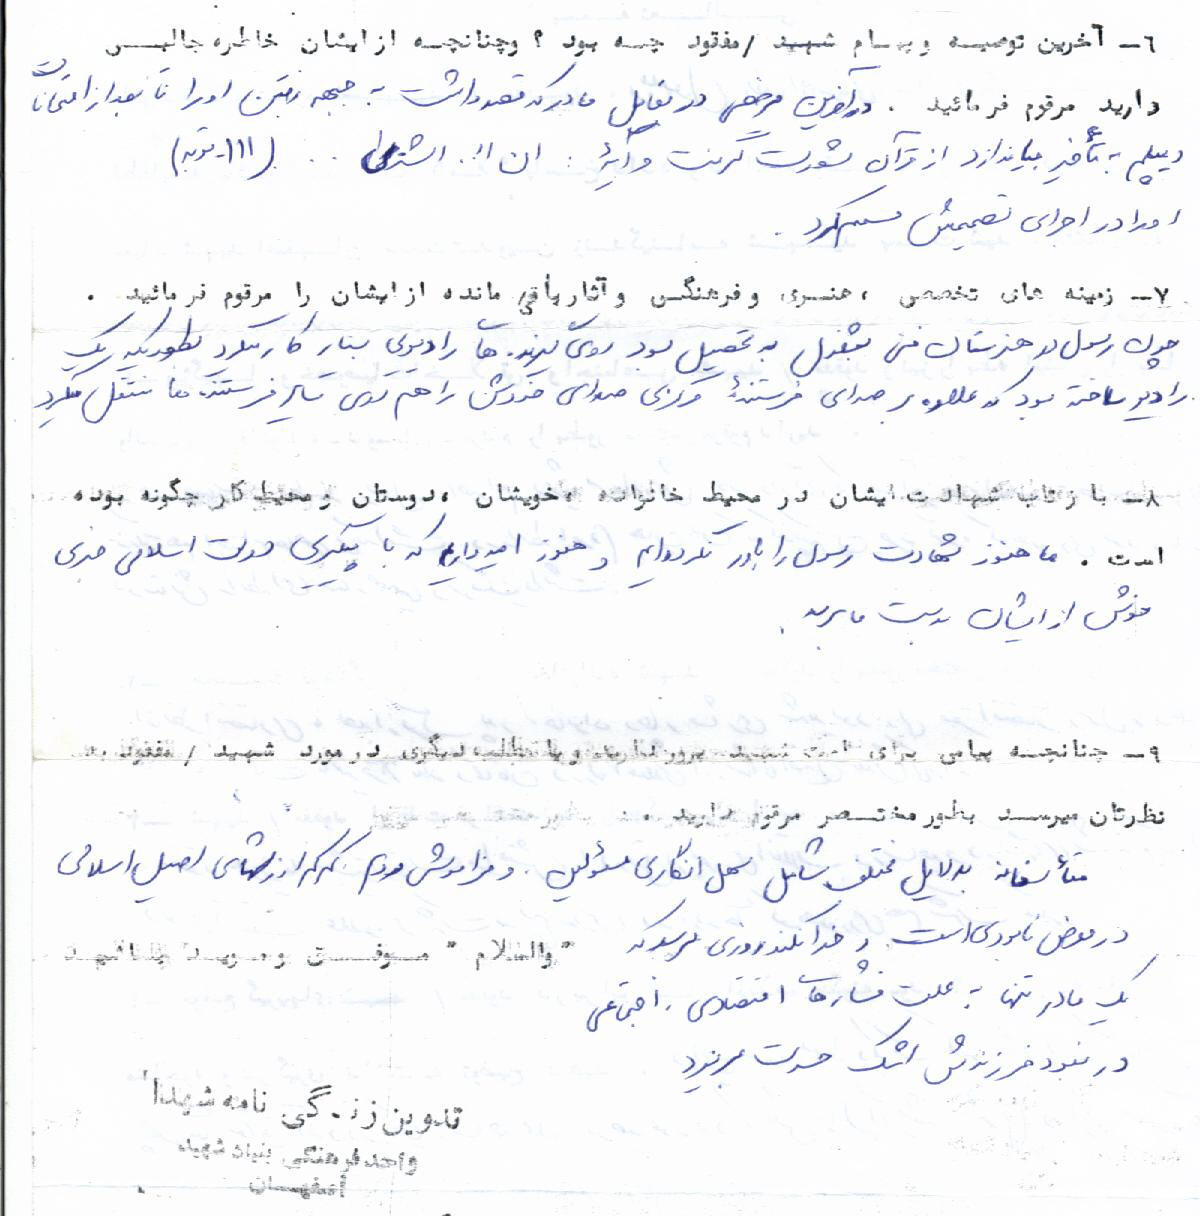 ٦ــ آخرین توصیه و پیام شهید /مفقود چه بود ؟ و چنانچه از ایشان خاطره جالبی
دارید مرقوم فرمائید . در آخرین مرخصی در مقابل مادر که قصد داشت به جبهه رفتن او را تا بعد از امتحانات
دیپلم به تأخیر بیاندازد از قرآن مشورت گرفت و آیهٔ : ان الله اشتری ... (۱۱۱- توبه)
او را در اجرای تصمیمش مصمم کرد .
۷ــ زمینه های تخصصی ، هنری و فرهنگی و آثار باقی مانده از ایشان را مرقوم فرمائید .
چون رسول در هنرستان فنی مشغول به تحصیل بود روی گیرنده ها رادیوی بسیار کار میکرد بطوریکه یک
رادیو ساخته بود که علاوه بر صدای فرستندهٔ مرکزی صدای خودش را هم روی سایر فرستنده ها منتقل میکرد
۸ــ بازتاب شهادت ایشان در محیط خانواده ، خویشان ، دوستان و محیط کار چگونه بوده
است . ما هنوز شهادت رسول را باور نکرده‌ایم و هنوز امیدواریم که با پیگیری دولت اسلامی خبری
خوش از ایشان بدست ما برسد .
۹ــ چنانچه پیامی برای امت شهید پرور دارید و یا مطلب دیگری در مورد شهید /مفقود به
نظرتان میرسد بطور مختصر مرقوم دارید .
متأسفانه بدلایل مختلف شامل سهل انگاری مسئولین . و فراموشی مردم کم کم ارزشهای اصیل اسلامی
در معرض نابودی است . و خدا نکند روزی برسد که
"والسلام" موفق و موید باشید
یک مادر تنها به علت فشارهای اقتصادی . اجتماعی
در نبود فرزندش اشک حسرت بریزد
تدوین زندگی نامه شهدا
واحد فرهنگی بنیاد شهید
اصفهان